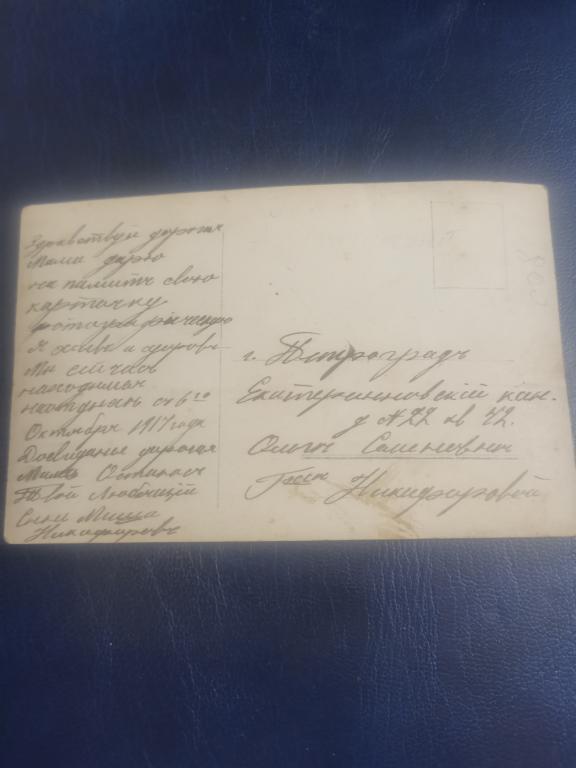 Здравствуй дорогая
Мама дарю
на память свою
карточку
фотографическую
Я жив и здоров
Мы сейчась
находимся
на отдыхъ с 6го
Октября 1917 года
Досвидание дорогая
Мама Остаюсь
Твой Любящій
Сынъ Миша
Никифоровъ
г. Петроградъ
Екатерининовскій кан.
д № 22 кв 42.
Ольги Семеневни
Гжи Никифоровой